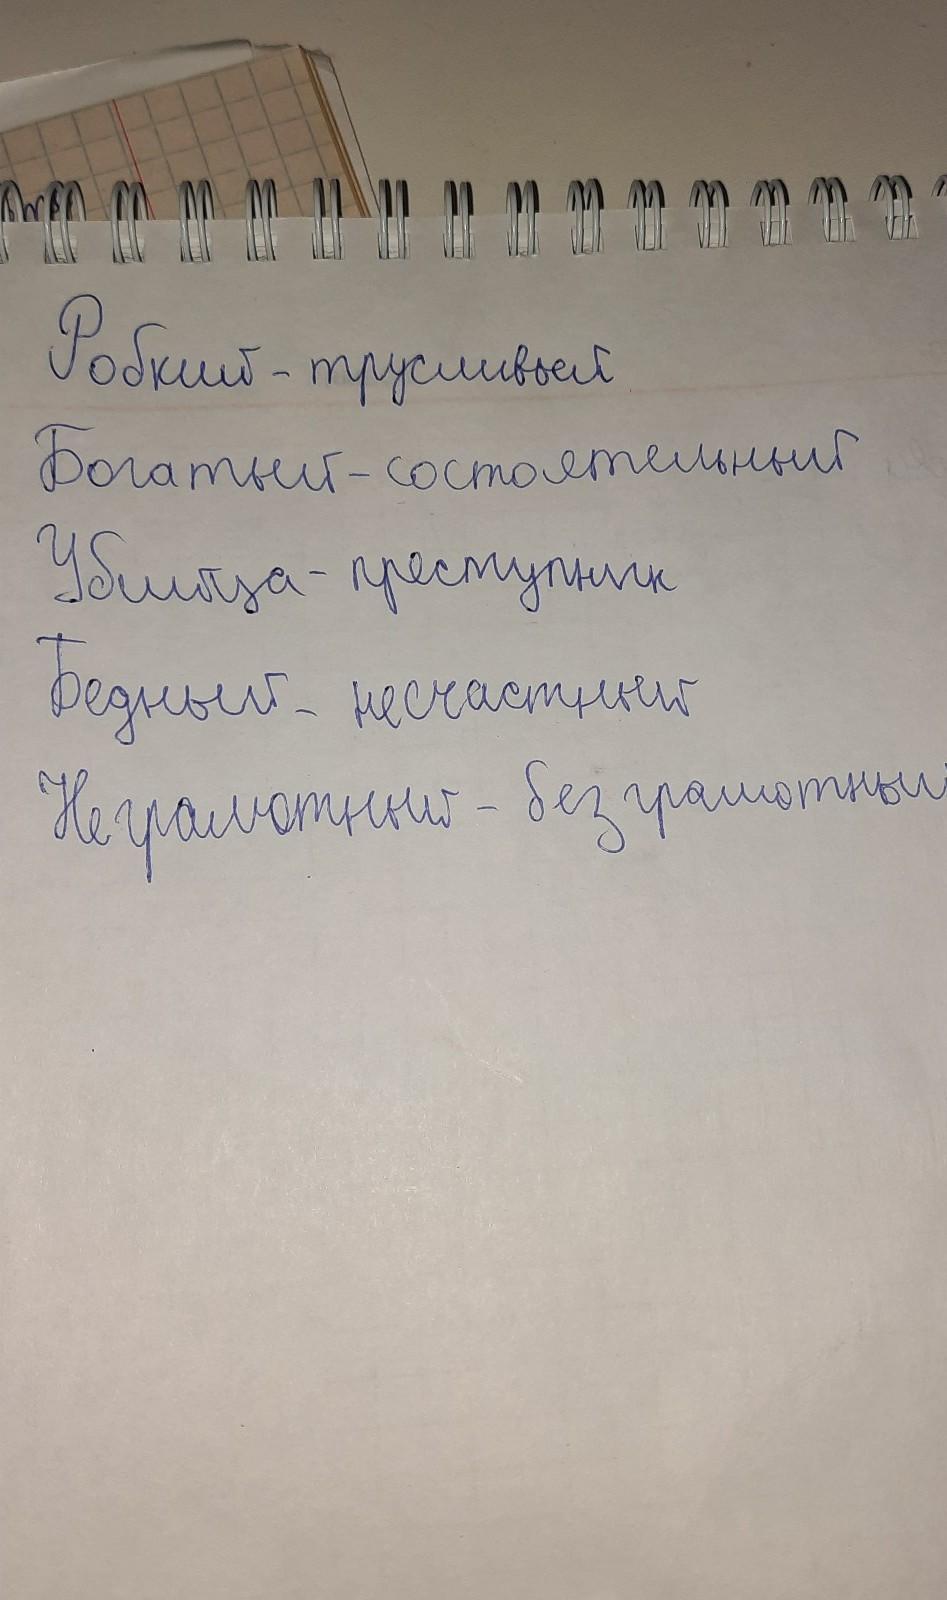 Робкий - трусливый
Богатый - состоятельный
Убийца - преступник
Бедный - несчастный
Неграмотный - безграмотный